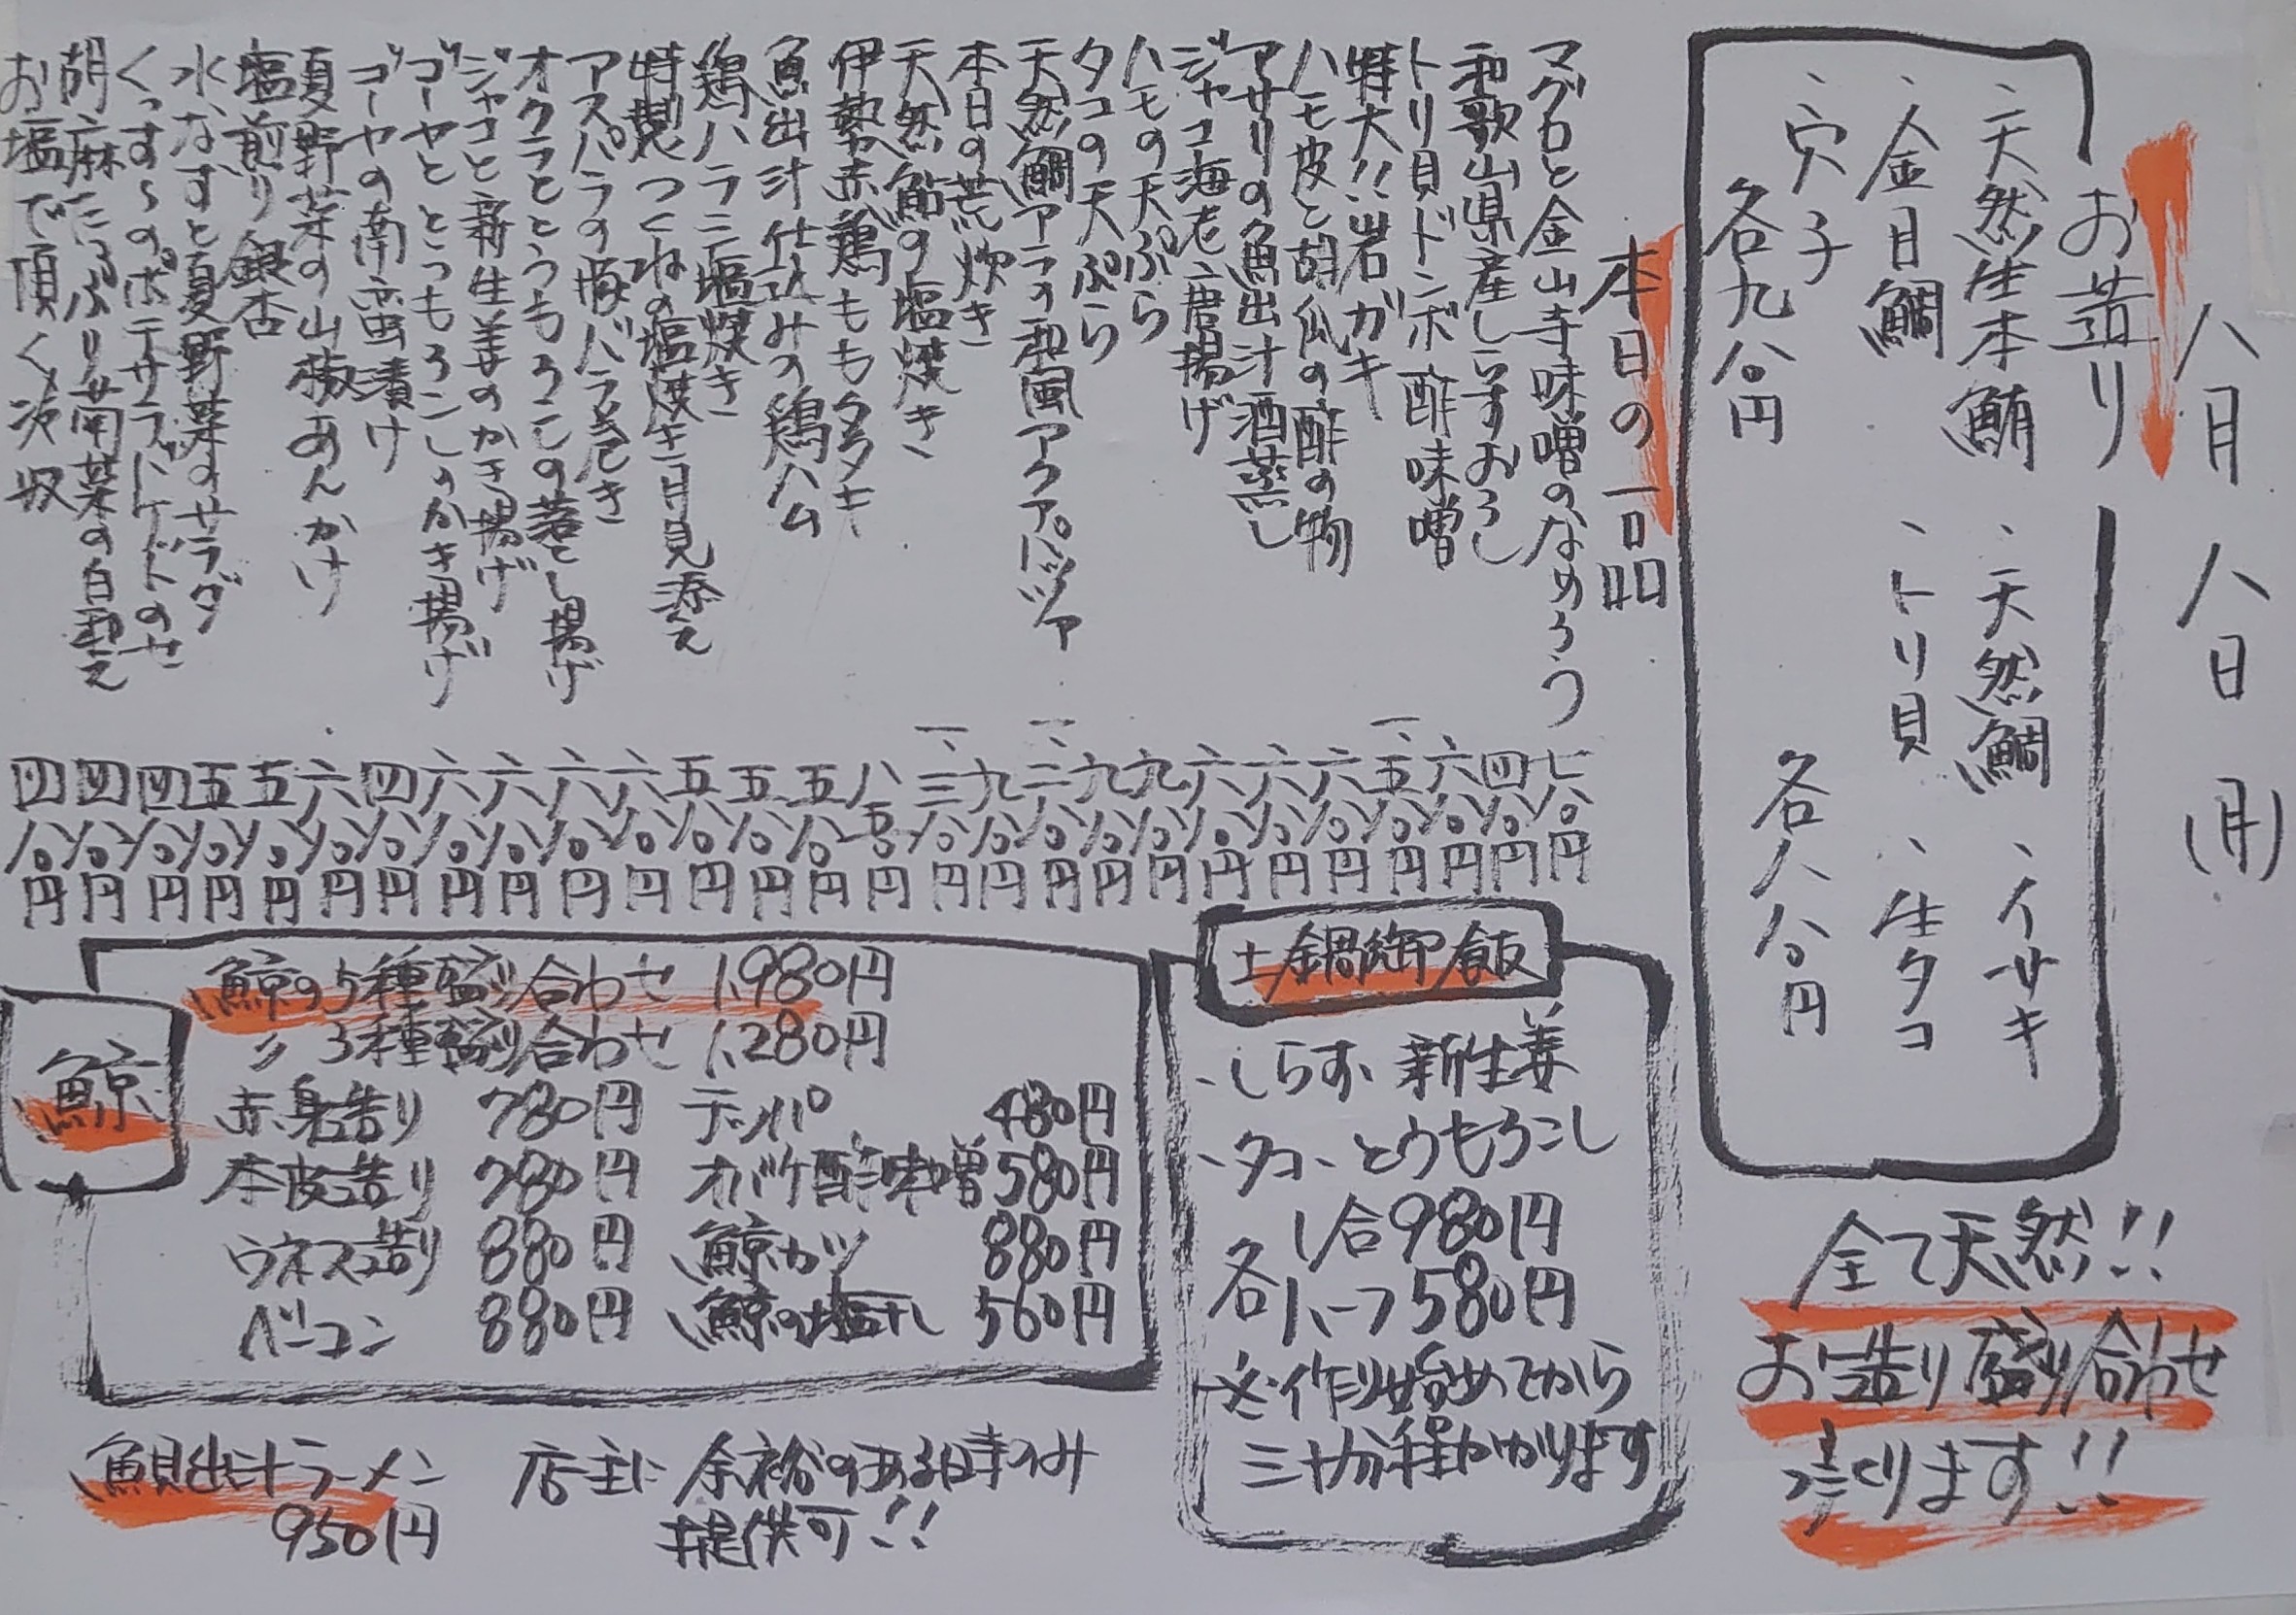 八月八日(月)
お造り
、天然生本鮪 、天然鯛 、イサキ
、金目鯛 、トリ貝 、生タコ
、穴子
各九八〇円 各八八〇円
全て天然!!
お造り盛り合わせ
承ります!!
本日の一品
マグロと金山寺味噌のなめろう 七八〇円
和歌山県産しらすおろし 四八〇円
トリ貝ドンボ酢味噌 六八〇円
特大!!岩ガキ 一、五八〇円
ハモ皮と胡瓜の酢の物 六八〇円
アサリの魚出汁酒蒸し 六八〇円
ジャコ海老唐揚げ 六八〇円
ハモの天ぷら 九八〇円
タコの天ぷら 九八〇円
天然鯛アラの和風アクアパッツァ 一、二八〇円
本日の荒炊き 九八〇円
天然鮎の塩焼き 一、三八〇円
伊勢赤鶏ももタタキ 八五〇円
魚出汁仕込みの鶏ハム 五八〇円
鶏ハラミ塩焼き 五八〇円
特製つくねの塩焼き月見添え 五八〇円
アスパラの豚バラ巻き 六八〇円
オクラととうもろこしの落とし揚げ 六八〇円
ジャコと新生姜のかき揚げ 六八〇円
ゴーヤととうもろこしのかき揚げ 六八〇円
ゴーヤの南蛮漬け 四八〇円
夏野菜の山椒あんかけ 六八〇円
塩煎り銀杏 五八〇円
水なすと夏野菜のサラダ 五八〇円
くっすんのポテサラバゲットのせ 四八〇円
胡麻たっぷり青菜の白和え 四八〇円
お塩で頂く冷奴 四八〇円
土鍋御飯
、しらす、新生姜
、タコ、とうもろこし
各 1合980円
ハーフ580円
※作り始めてから
三十分程かかります
鯨
鯨の5種盛り合わせ 1,980円
〃 3種盛り合わせ 1,280円
赤身造り 780円 テッパ 480円
本皮造り 780円 オバケ酢味噌 580円
ウネス造り 880円 鯨カツ 880円
ベーコン 880円 鯨の塩干し 560円
魚貝出汁ラーメン 店主に余裕のある時のみ
950円 提供可!!